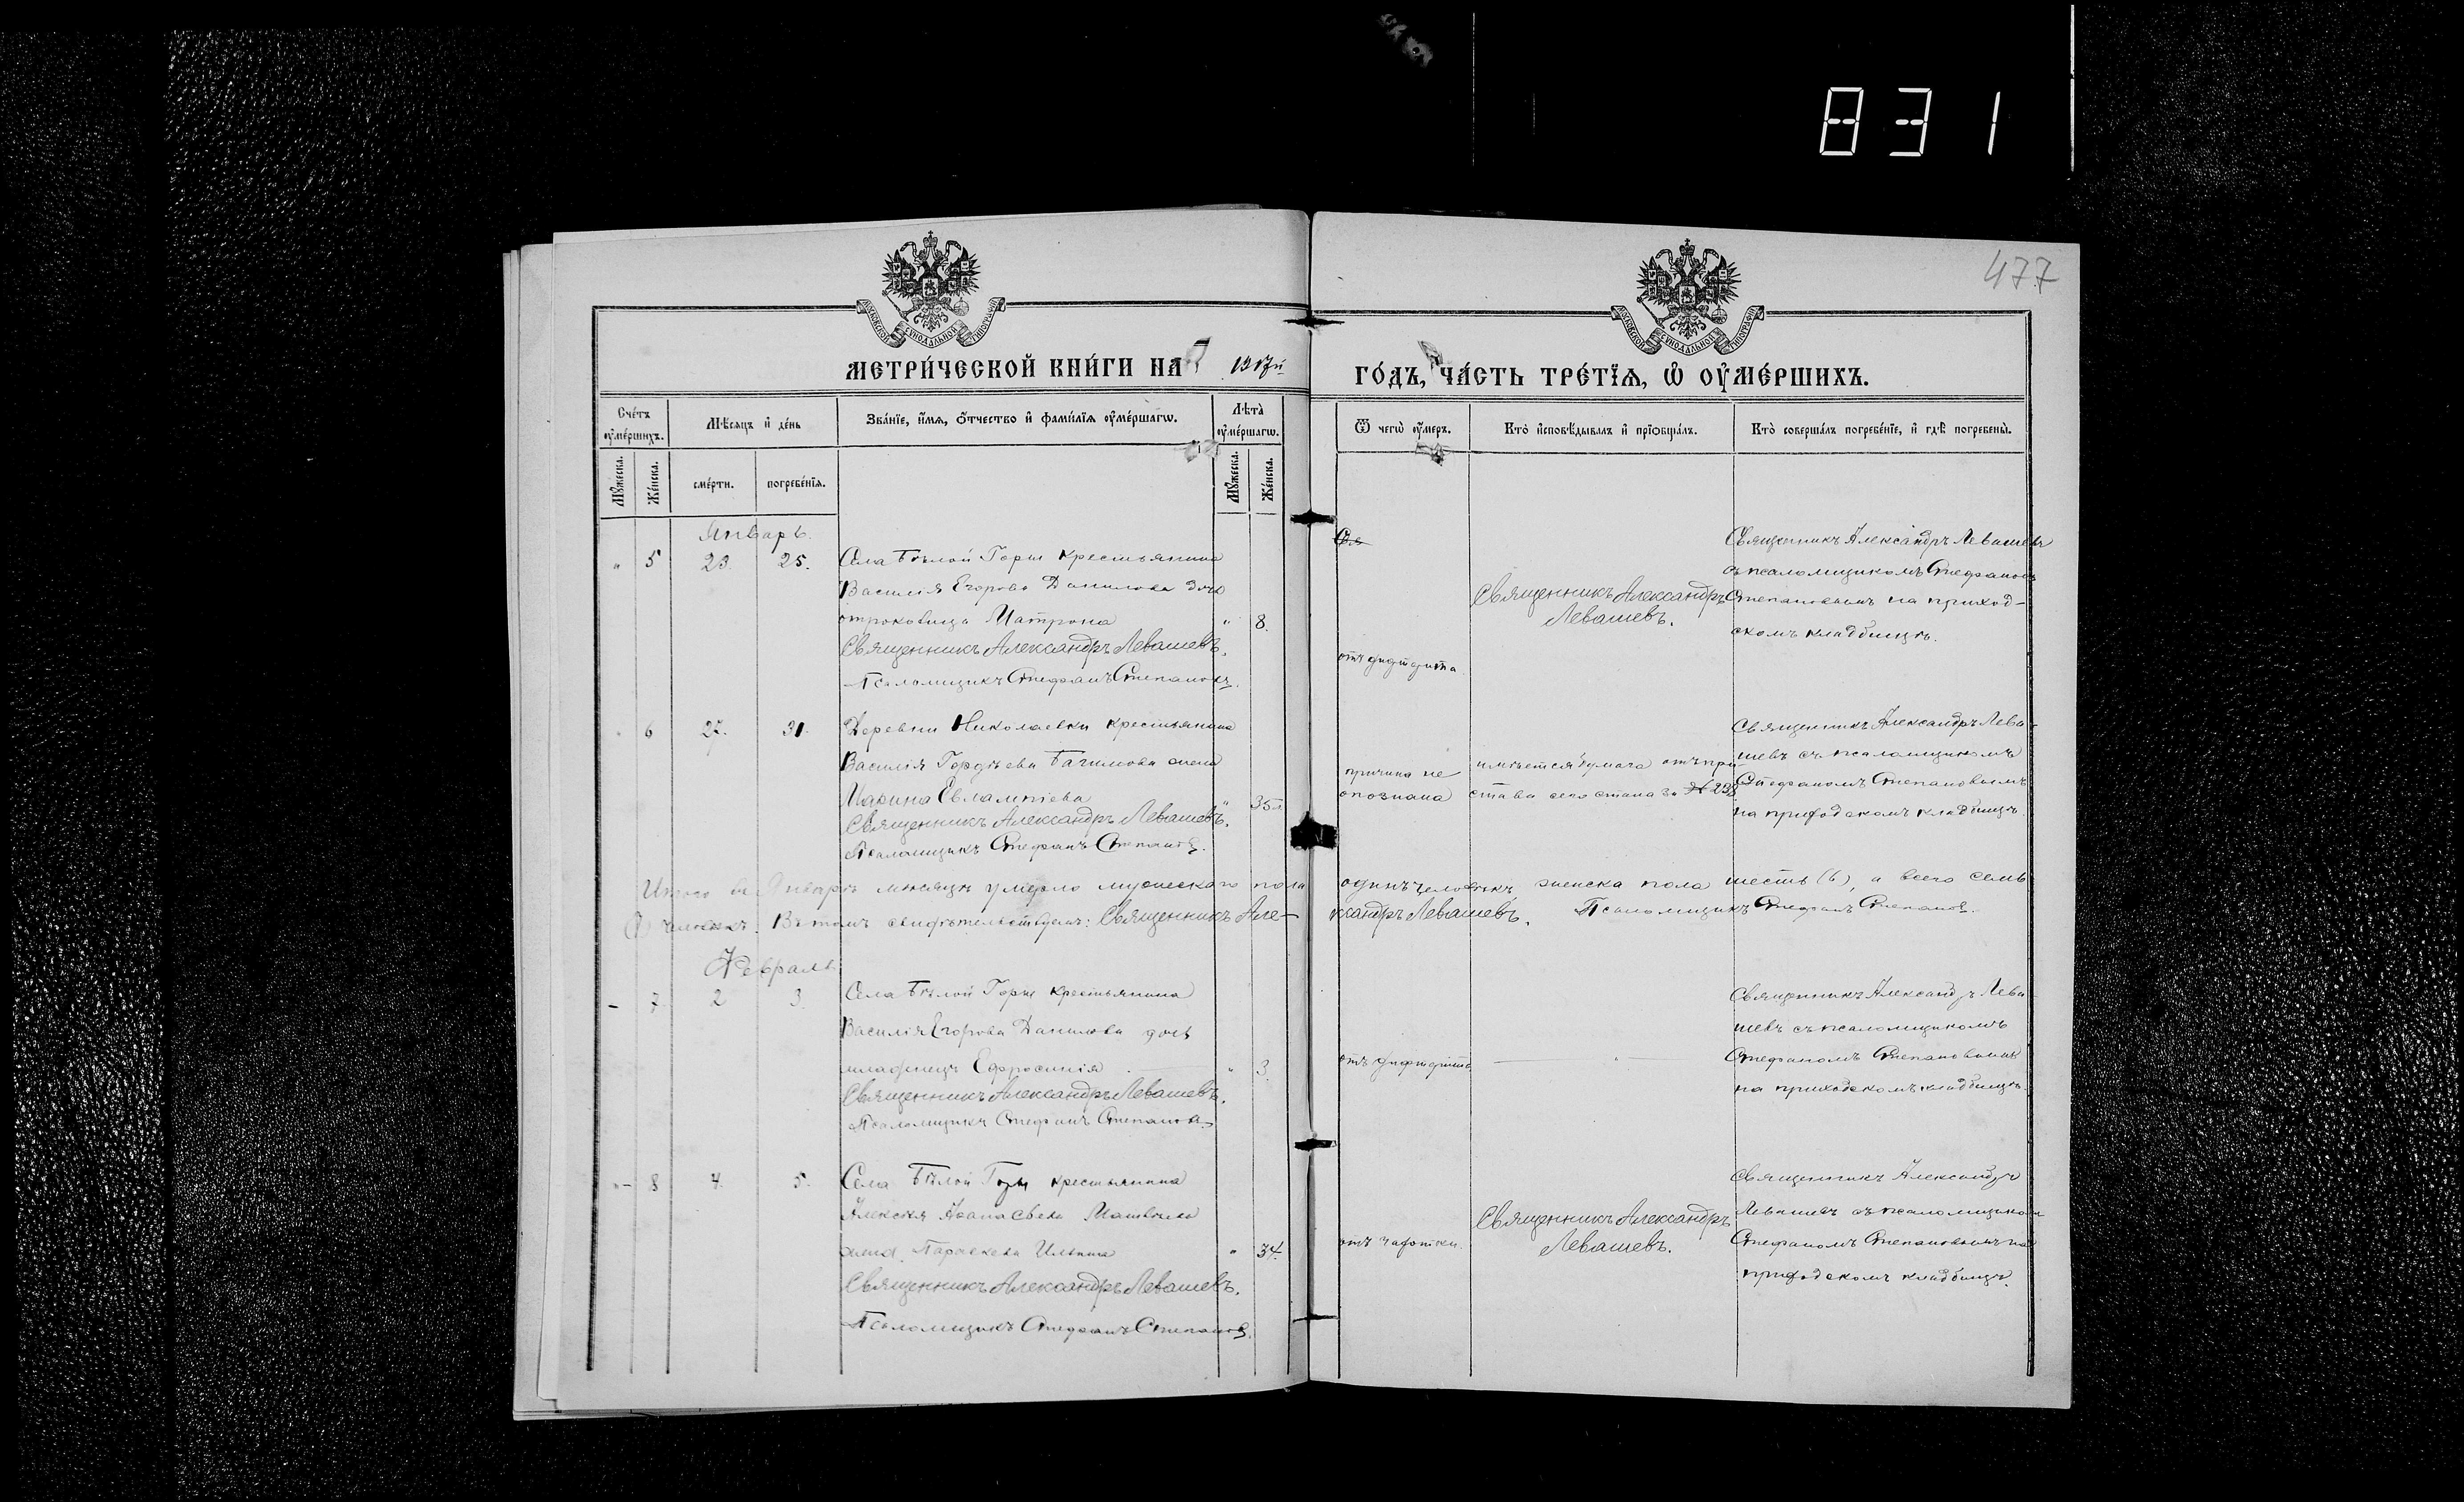 831
477
МОСКОВСКОЙ СѴНОДАЛЬНОЙ ТИПОГРАФІИ
МОСКОВСКОЙ СѴНОДАЛЬНОЙ ТИПОГРАФІИ
МЕТРИ́ЧЕСКОЙ КНИ́ГИ НА 1917й ГО́ДЪ, ЧА́СТЬ ТРЕ́ТЇѦ, Ѡ҆ ОУ҆МЕ́РШИХЪ.
Сче́тъ оу҆ме́ршихъ.
Мѣ́сяцъ и҆ де́нь
Зва́нїе, и҆́мѧ, ѻ҆́тчество и҆ фами́лїѧ оу҆ме́ршагѡ.
Лѣта̀ оу҆ме́ршагѡ.
Ѿ чегѡ̀ оу҆́меръ.
Кто̀ и҆сповѣ́дывалъ и҆ прїѡбща́лъ.
Кто̀ соверша́лъ погребе́нїе, и҆ гдѣ̀ погребены̀.
Мꙋ́жеска.
Же́нска.
сме́рти.
погребе́нїѧ.
Мꙋ́жеска.
Же́нска.
Январь.
" 5 23. 25. Села Бѣлой Горы крестьянина
Василія Егорова Данилова дочь
отроковица Матрона " 8.
Священникъ Александръ Левашевъ.
Псаломщикъ Стефанъ Степановъ.
отъ дифтерита
Священникъ Александръ
Левашевъ.
Священникъ Александръ Левашевъ
съ псаломщикомъ Стефаномъ
Степановымъ на приход-
скомъ кладбищѣ.
" 6 27. 31. Деревни Николаевки крестьянина
Василія Гордѣева жена
Марина Евлампіева " 35
Священникъ Александръ Левашевъ.
Псаломщикъ Стефанъ Степановъ.
причина не
опознана
имѣется бумага отъ при-
става сего стана за №
Священникъ Александръ Лева-
шевъ съ псаломщикомъ
Стефаномъ Степановымъ
на приходскомъ кладбищѣ.
Итого въ Январѣ мѣсяцѣ умерло мужескаго пола одинъ человѣкъ женска пола шесть (6), а всего семь
(7) человѣкъ. Въ томъ свидѣтельствуемъ: Священникъ Але-
ксандръ Левашевъ. Псаломщикъ Стефанъ Степановъ.
Февраль
- 7. 2 3. Села Бѣлой Горы крестьянина
Василія Егорова Данилова дочь
младенецъ Ефросинія " 3.
Священникъ Александръ Левашевъ.
Псаломщикъ Стефанъ Степановъ
отъ дифтерита
Священникъ Александръ Лева-
шевъ съ псаломщикомъ
Стефаномъ Степановымъ
на приходскомъ кладбищѣ.
"- 8 4. 5. Села Бѣлой Горы крестьянина
Алексѣя Аѳанасьева Матвѣева
жена Параскева Ильина " 34.
Священникъ Александръ Левашевъ.
Псаломщикъ Стефанъ Степановъ.
отъ чахотки.
Священникъ Александръ
Левашевъ.
Священникъ Александръ
Левашевъ съ псаломщикомъ
Стефаномъ Степановымъ на
приходскомъ кладбищѣ.